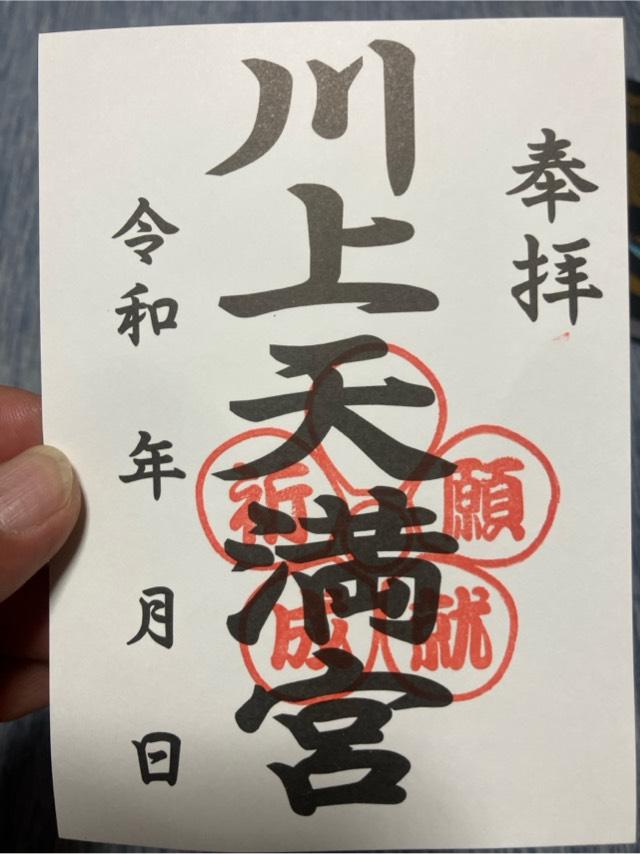 奉拝
川上天満宮
祈願
成就
令和 年 月 日